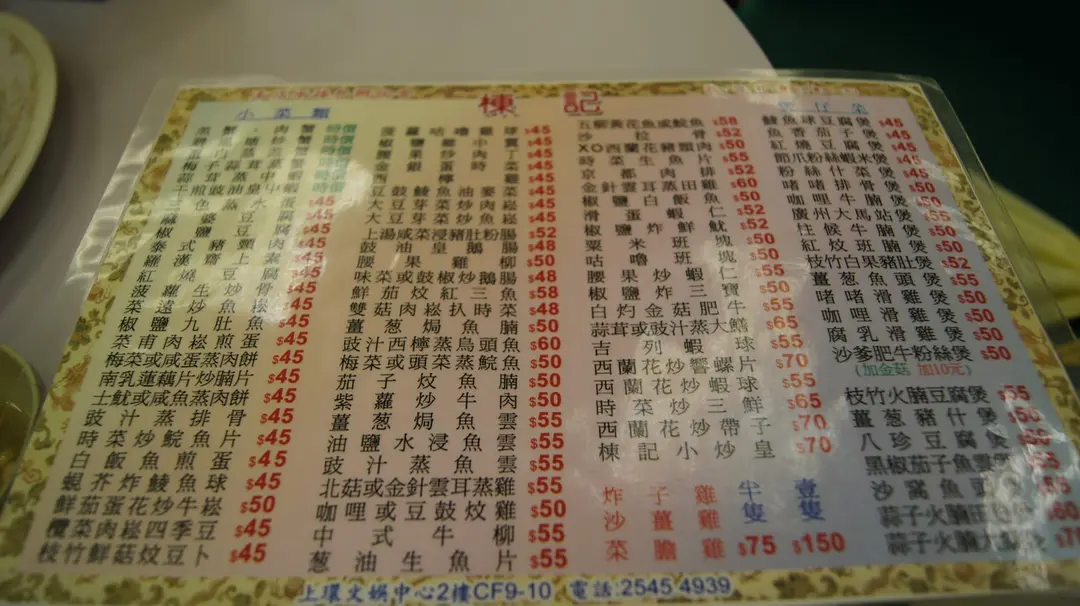 棟記
小菜類
時價
三色蒸水蛋 $45
麻婆豆腐 $45
椒鹽豆腐 $45
泰式豬頸肉 $45
羅漢齋上素 $45
紅燒豆腐 $45
菠蘿生炒骨 $45
菜遠炒魚崧 $45
椒鹽九肚魚 $45
菜甫肉崧煎蛋 $45
梅菜或咸蛋蒸肉餅 $45
南乳蓮藕片炒腩片 $45
土魷或咸魚蒸肉餅 $45
豉汁蒸排骨 $45
時菜炒鯇魚片 $45
白飯魚煎蛋 $45
蜆芥炸鯪魚球 $45
鮮茄蛋花炒牛崧 $50
欖菜肉崧四季豆 $45
枝竹鮮菇炆豆卜 $45
菠蘿咕嚕雞球 $45
豆豉鯪魚油麥菜 $45
大豆芽菜炒肉崧 $45
大豆芽菜炒魚崧 $45
上湯咸菜浸豬肚粉腸 $52
豉油皇鵝腸 $48
腰果雞柳 $50
味菜或豉椒炒鵝腸 $48
鮮茄炆紅三魚 $58
雙菇肉崧扒時菜 $48
薑葱焗魚腩 $50
豉汁西檸蒸烏頭魚 $60
梅菜或頭菜蒸鯇魚 $50
茄子炆魚腩 $50
紫蘿炒牛肉 $50
薑葱焗魚雲 $55
油鹽水浸魚雲 $55
豉汁蒸魚雲 $55
北菇或金針雲耳蒸雞 $55
咖哩或豆豉炆雞 $50
中式牛柳 $55
葱油生魚片 $55
五柳黃花魚或鯇魚 $58
沙拉骨 $52
XO西蘭花豬頸肉 $50
時菜生魚片 $55
京都肉排 $52
金針雲耳蒸田雞 $60
椒鹽白飯魚 $50
滑蛋蝦仁 $52
椒鹽炸鮮魷 $52
粟米班塊 $50
咕嚕班塊 $50
腰果炒蝦仁 $55
椒鹽炸三寶 $50
白灼金菇肥牛 $55
蒜茸或豉汁蒸大鱔 $65
吉列蝦球 $55
西蘭花炒響螺片 $70
西蘭花炒蝦球 $55
時菜炒三鮮 $65
西蘭花炒帶子 $70
棟記小炒皇 $70
半隻 壹隻
炸子雞
沙薑雞
菜膽雞 $75 $150
煲仔菜
鯪魚球豆腐煲 $45
魚香茄子煲 $45
紅燒豆腐煲 $45
節瓜粉絲蝦米煲 $45
粉絲什菜煲 $45
啫啫排骨煲 $50
咖哩牛腩煲 $50
廣州大馬站煲 $55
柱侯牛腩煲 $50
紅炆班腩煲 $50
枝竹白果豬肚煲 $52
薑葱魚頭煲 $55
啫啫滑雞煲 $50
咖哩滑雞煲 $50
腐乳滑雞煲 $50
沙爹肥牛粉絲煲 $50
(加金菇 加10元)
枝竹火腩豆腐煲 $55
薑葱豬什煲 $50
八珍豆腐煲
黑椒茄子魚雲煲
沙窩魚雲
蒜子火腩田雞
蒜子火腩大鱔
上環文娛中心2樓CF9-10 電話:2545 4939